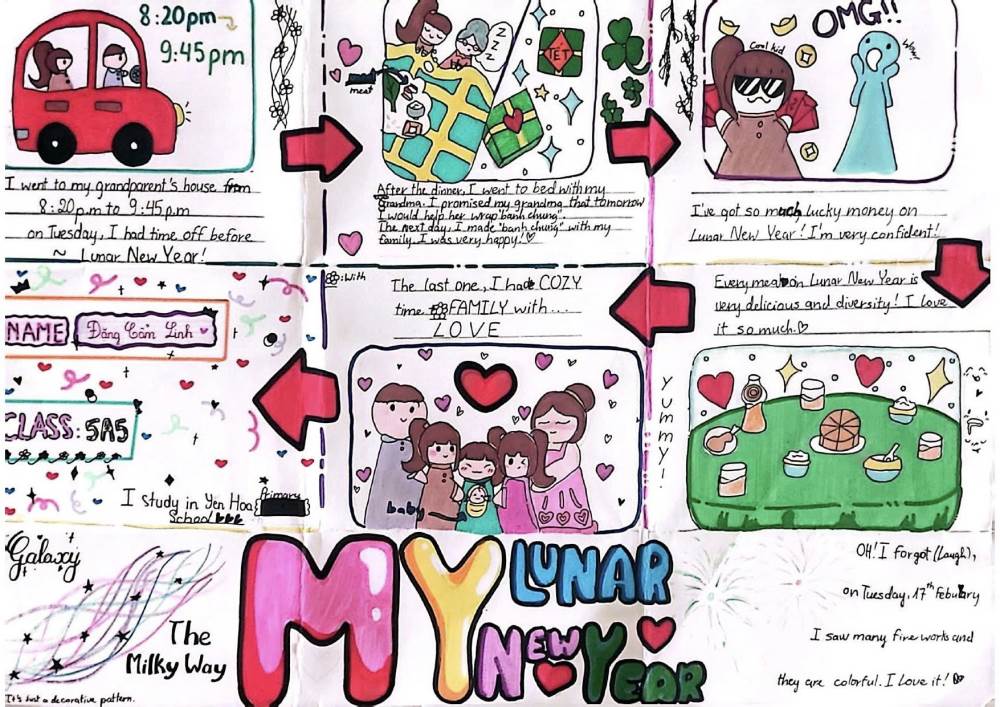 8:20pm
9:45pm
I went to my grandparent's house from
8:20p.m to 9:45p.m
on Tuesday, I had time off before
~ Lunar New Year!
meat
Z
Z
Z
TẾT
After the dinner, I went to bed with my
grandma. I promised my grandma that tomorrow
I would help her wrap "banh chung".
The next day, I made "banh chung" with my
family. I was very happy!
OMG!!
Cool kid
I've got so much lucky money on
Lunar New Year! I'm very confident!
Every meal on Lunar New Year is
very delicious and diversity! I love
it so much.
YUMMY!
:With
The last one, I had COZY
time FAMILY with...
LOVE
baby
NAME
Đặng Cẩm Linh
CLASS: 5A5
I study in Yen Hoa Primary
School
Galaxy
The
Milky Way
It's just a decorative pattern.
MY LUNAR
NEW YEAR
OH! I forgot (Laugh),
on Tuesday, 17th Febuary
I saw many fire works and
they are colorful. I Love it!